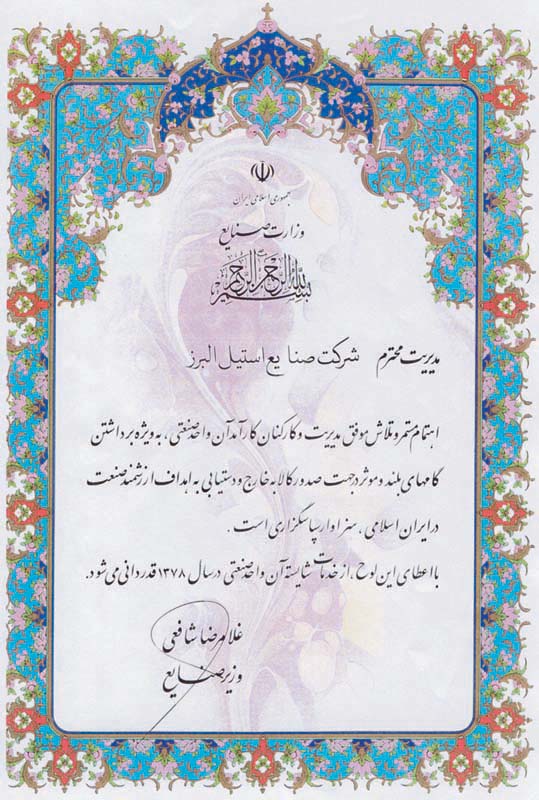 جمهوری اسلامی ایران
وزارت صنایع
بسم الله الرحمن الرحیم
مدیریت محترم شرکت صنایع استیل البرز
اهتمام مستمر و تلاش موفق مدیریت و کارکنان کارآمد آن واحد صنعتی، به ویژه برداشتن
گامهای بلند و موثر در جهت صدور کالا به خارج و دستیابی به اهداف ارزشمند صنعت
در ایران اسلامی، سزاوار سپاسگزاری است.
با اعطای این لوح، از خدمات شایسته آن واحد صنعتی در سال ۱۳۷۸ قدردانی می شود.
غلامرضا شافعی
وزیر صنایع